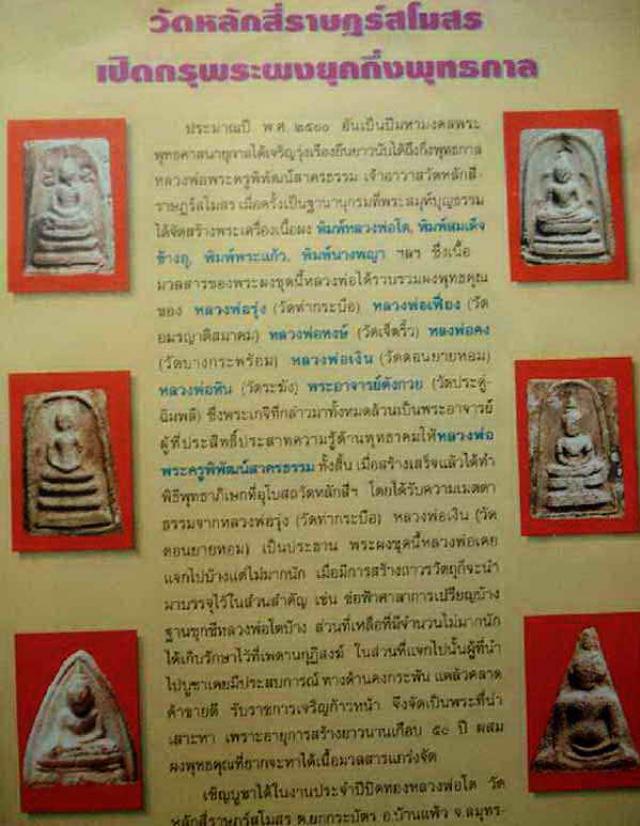 วัดหลักสี่ราษฎร์สโมสร
เปิดกรุพระผงยุคกึ่งพุทธกาล
ประมาณปี พ.ศ. ๒๕๐๐ อันเป็นปีมหามงคลพระ
พุทธศาสนายุกาลได้เจริญรุ่งเรืองยืนยาวนับได้ถึงกึ่งพุทธกาล
หลวงพ่อพระครูพิพัฒน์สาครธรรม เจ้าอาวาสวัดหลักสี่-
ราษฎร์สโมสร เมื่อครั้งเป็นฐานานุกรมที่พระสมุห์บุญธรรม
ได้จัดสร้างพระเครื่องเนื้อผง พิมพ์หลวงพ่อโต, พิมพ์สมเด็จ
ข้างอุ, พิมพ์พระแก้ว, พิมพ์นางพญา ฯลฯ ซึ่งเนื้อ
มวลสารของพระผงชุดนี้หลวงพ่อได้รวบรวมผงพุทธคุณ
ของ หลวงพ่อรุ่ง (วัดท่ากระบือ) หลวงพ่อเฟื่อง (วัด
อมรญาติสมาคม) หลวงพ่อหงษ์ (วัดเจ็ดริ้ว) หลวงพ่อคง
(วัดบางกระพร้อม) หลวงพ่อเงิน (วัดดอนยายหอม)
หลวงพ่อหิน (วัดระฆัง) พระอาจารย์ตังกวย (วัดประดู่-
ฉิมพลี) ซึ่งพระเกจิที่กล่าวมาทั้งหมดล้วนเป็นพระอาจารย์
ผู้ที่ประสิทธิ์ประสาทความรู้ด้านพุทธาคมให้หลวงพ่อ
พระครูพิพัฒน์สาครธรรม ทั้งสิ้น เมื่อสร้างเสร็จแล้วได้ทำ
พิธีพุทธาภิเษกที่อุโบสถวัดหลักสี่ฯ โดยได้รับความเมตตา
ธรรมจากหลวงพ่อรุ่ง (วัดท่ากระบือ) หลวงพ่อเงิน (วัด
ดอนยายหอม) เป็นประธาน พระผงชุดนี้หลวงพ่อเคย
แจกไปบ้างแต่ไม่มากนัก เมื่อมีการสร้างถาวรวัตถุก็จะนำ
มาบรรจุไว้ในส่วนสำคัญ เช่น ช่อฟ้าศาลาการเปรียญบ้าง
ฐานชุกชีหลวงพ่อโตบ้าง ส่วนที่เหลือที่มีจำนวนไม่มากนัก
ได้เก็บรักษาไว้ที่เพดานกุฏิสงฆ์ ในส่วนที่แจกไปนั้นผู้ที่นำ
ไปบูชาเคยมีประสบการณ์ ทางด้านคงกระพัน แคล้วคลาด
ค้าขายดี รับราชการเจริญก้าวหน้า จึงจัดเป็นพระที่น่า
เสาะหา เพราะอายุการสร้างยาวนานเกือบ ๕๐ ปี ผสม
ผงพุทธคุณที่ยากจะหาได้เนื้อมวลสารแกร่งจัด
เชิญบูชาได้ในงานประจำปีปิดทองหลวงพ่อโต วัด
หลักสี่ราษฎร์สโมสร ต.ยกกระบัตร อ.บ้านแพ้ว จ.สมุทร-